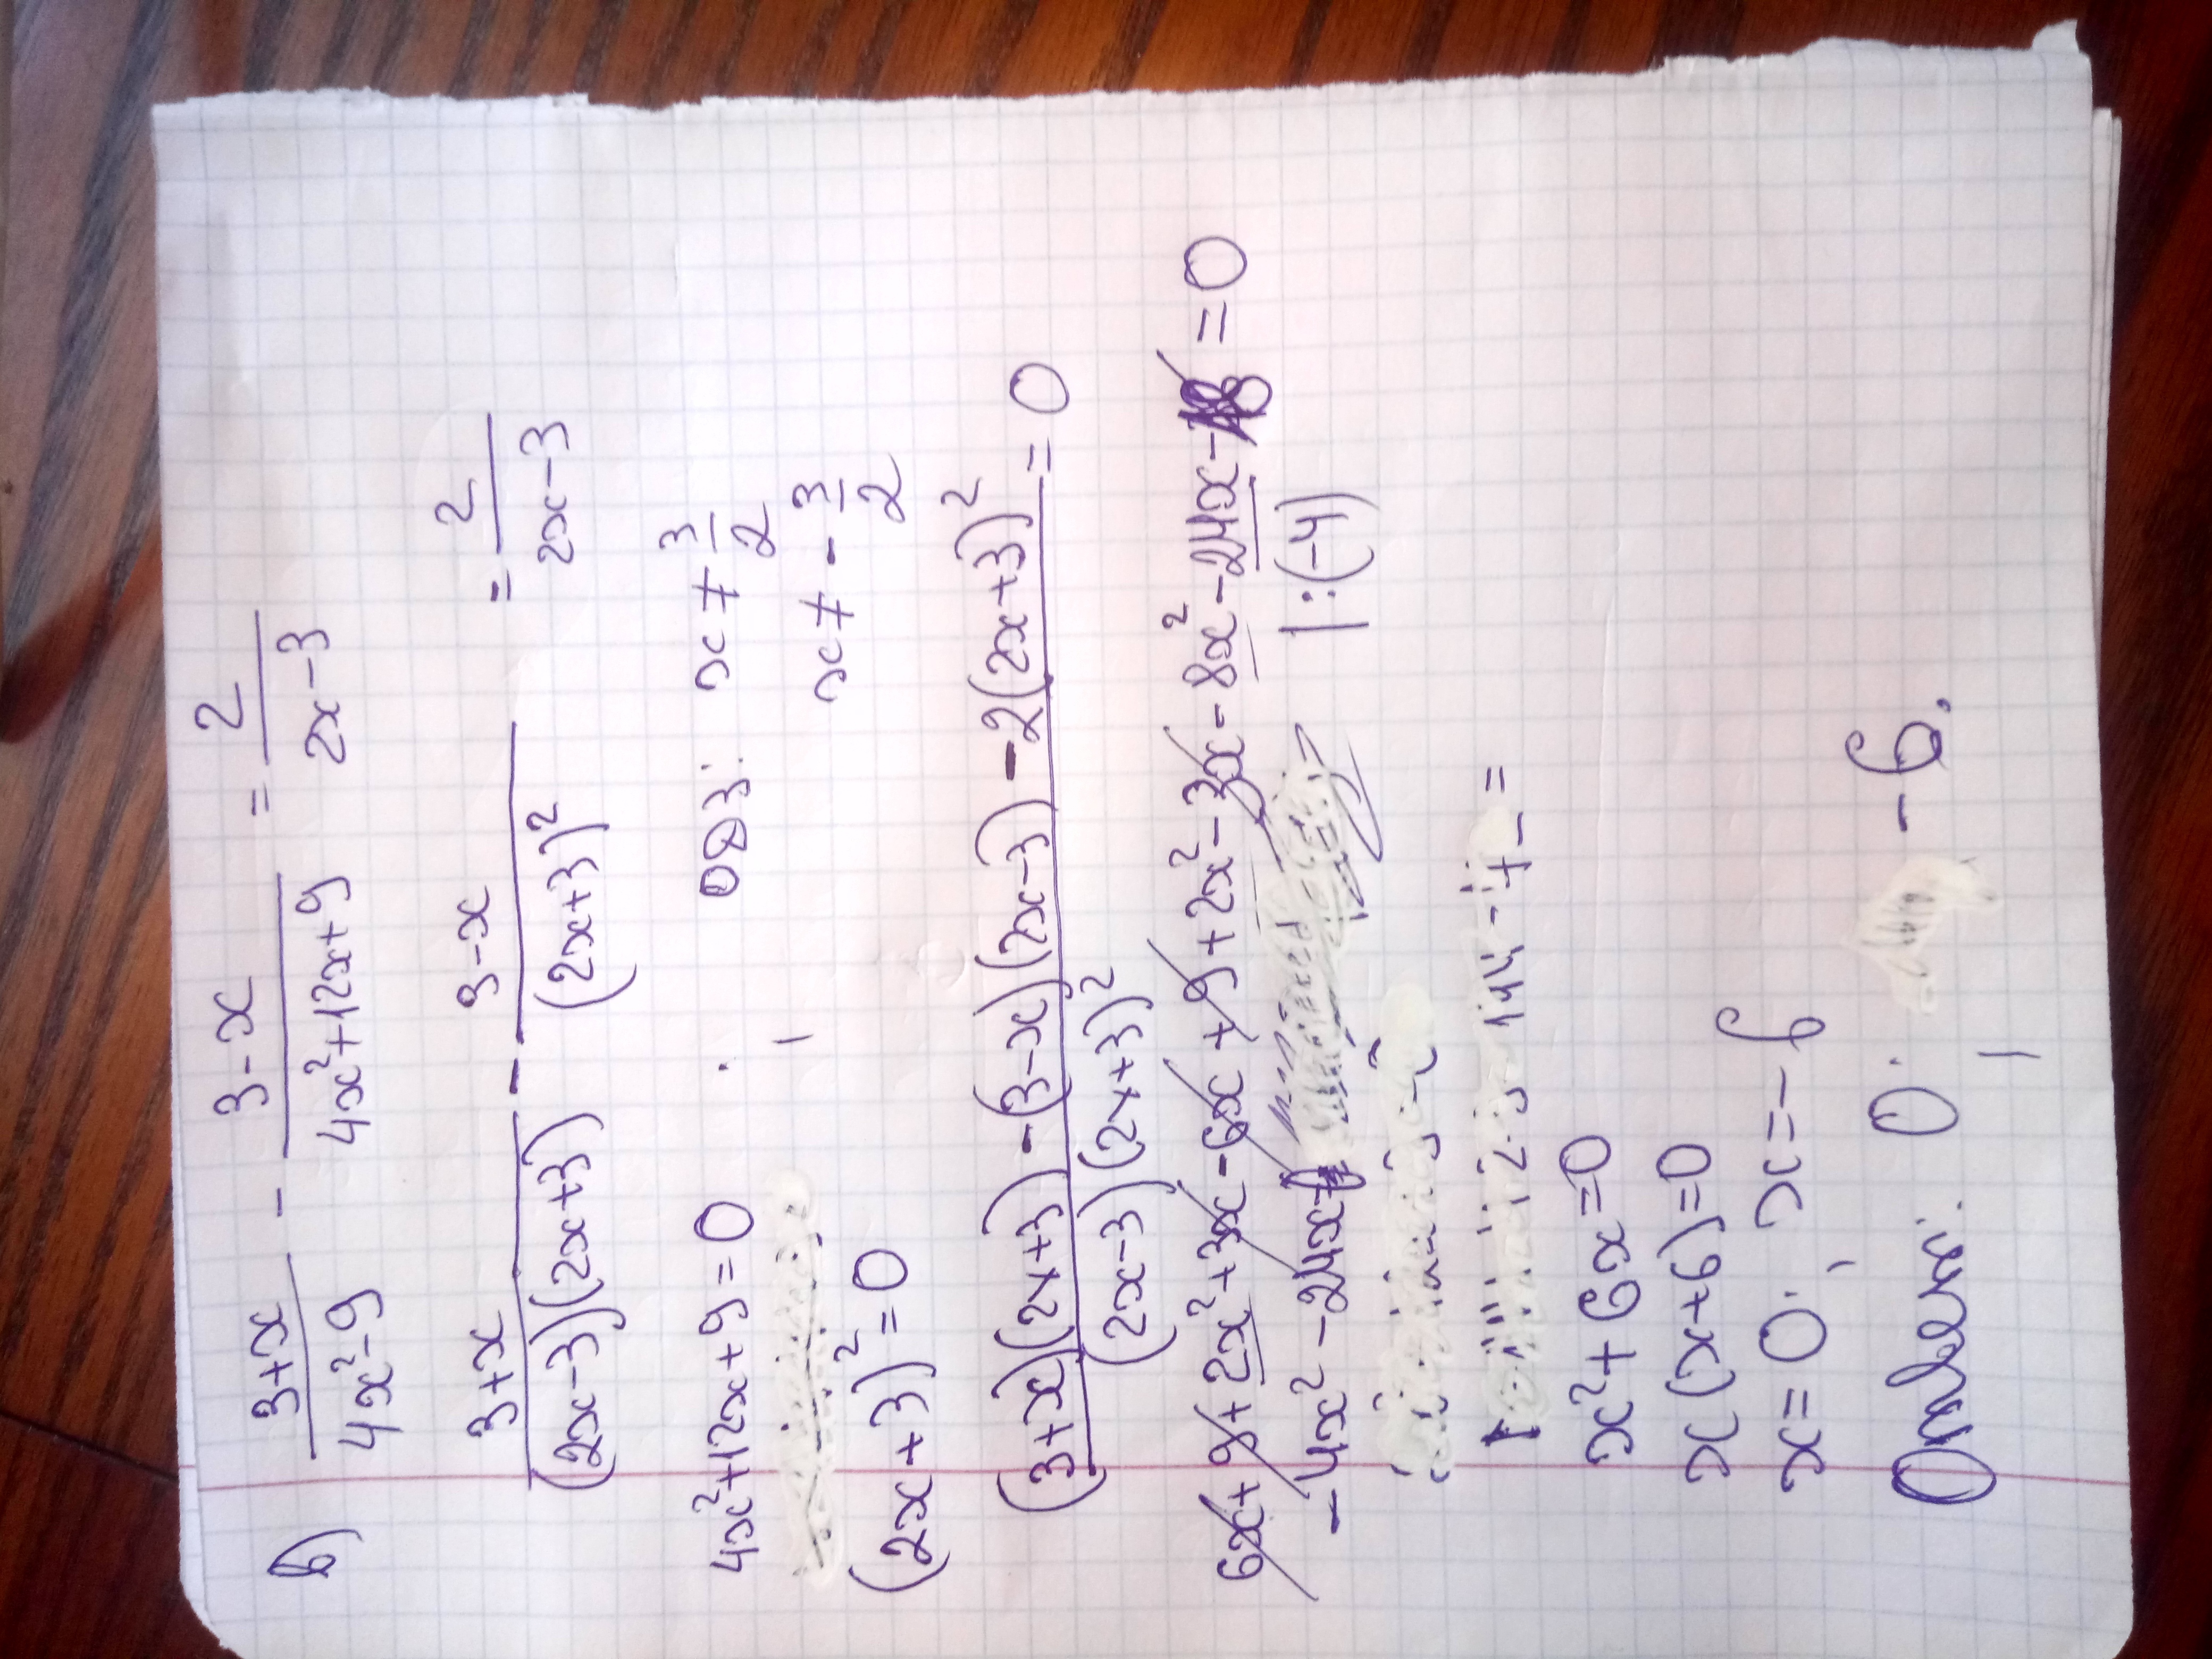 в) (3+x)/(4x²-9) - (3-x)/(4x²+12x+9) = 2/(2x-3)
(3+x)/((2x-3)(2x+3)) - (3-x)/((2x+3)²) = 2/(2x-3)
4x²+12x+9=0 ОДЗ: x≠3/2
x≠-3/2
(2x+3)²=0
((3+x)(2x+3)-(3-x)(2x-3)-2(2x+3)²)/((2x-3)(2x+3)²)=0
6x+9+2x²+3x-6x+9+2x²-3x-8x²-24x-18=0
-4x²-24x |:(-4)
x²+6x=0
x(x+6)=0
x=0; x=-6
Ответ: 0; -6.